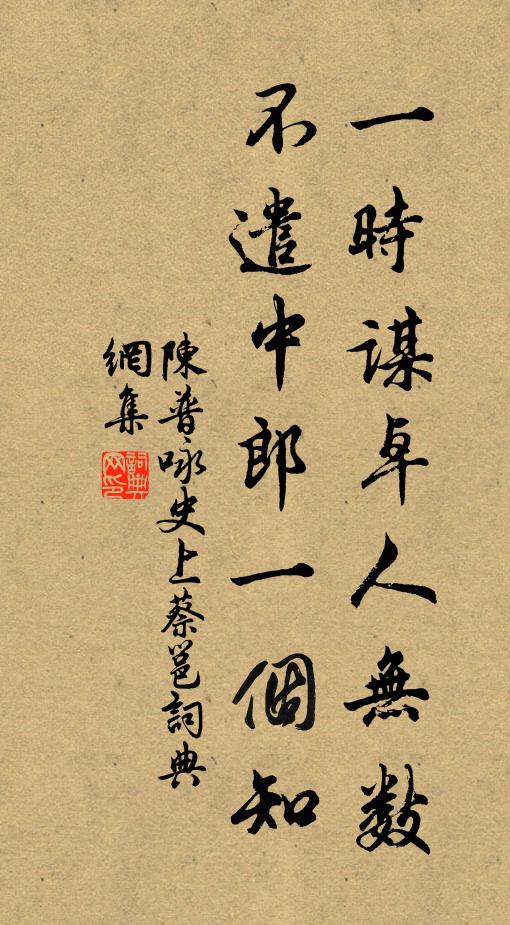 一時謀卓人無数
不遣中郎一個知
陳普咏史上蔡邕詞典
網集
詞典
网印